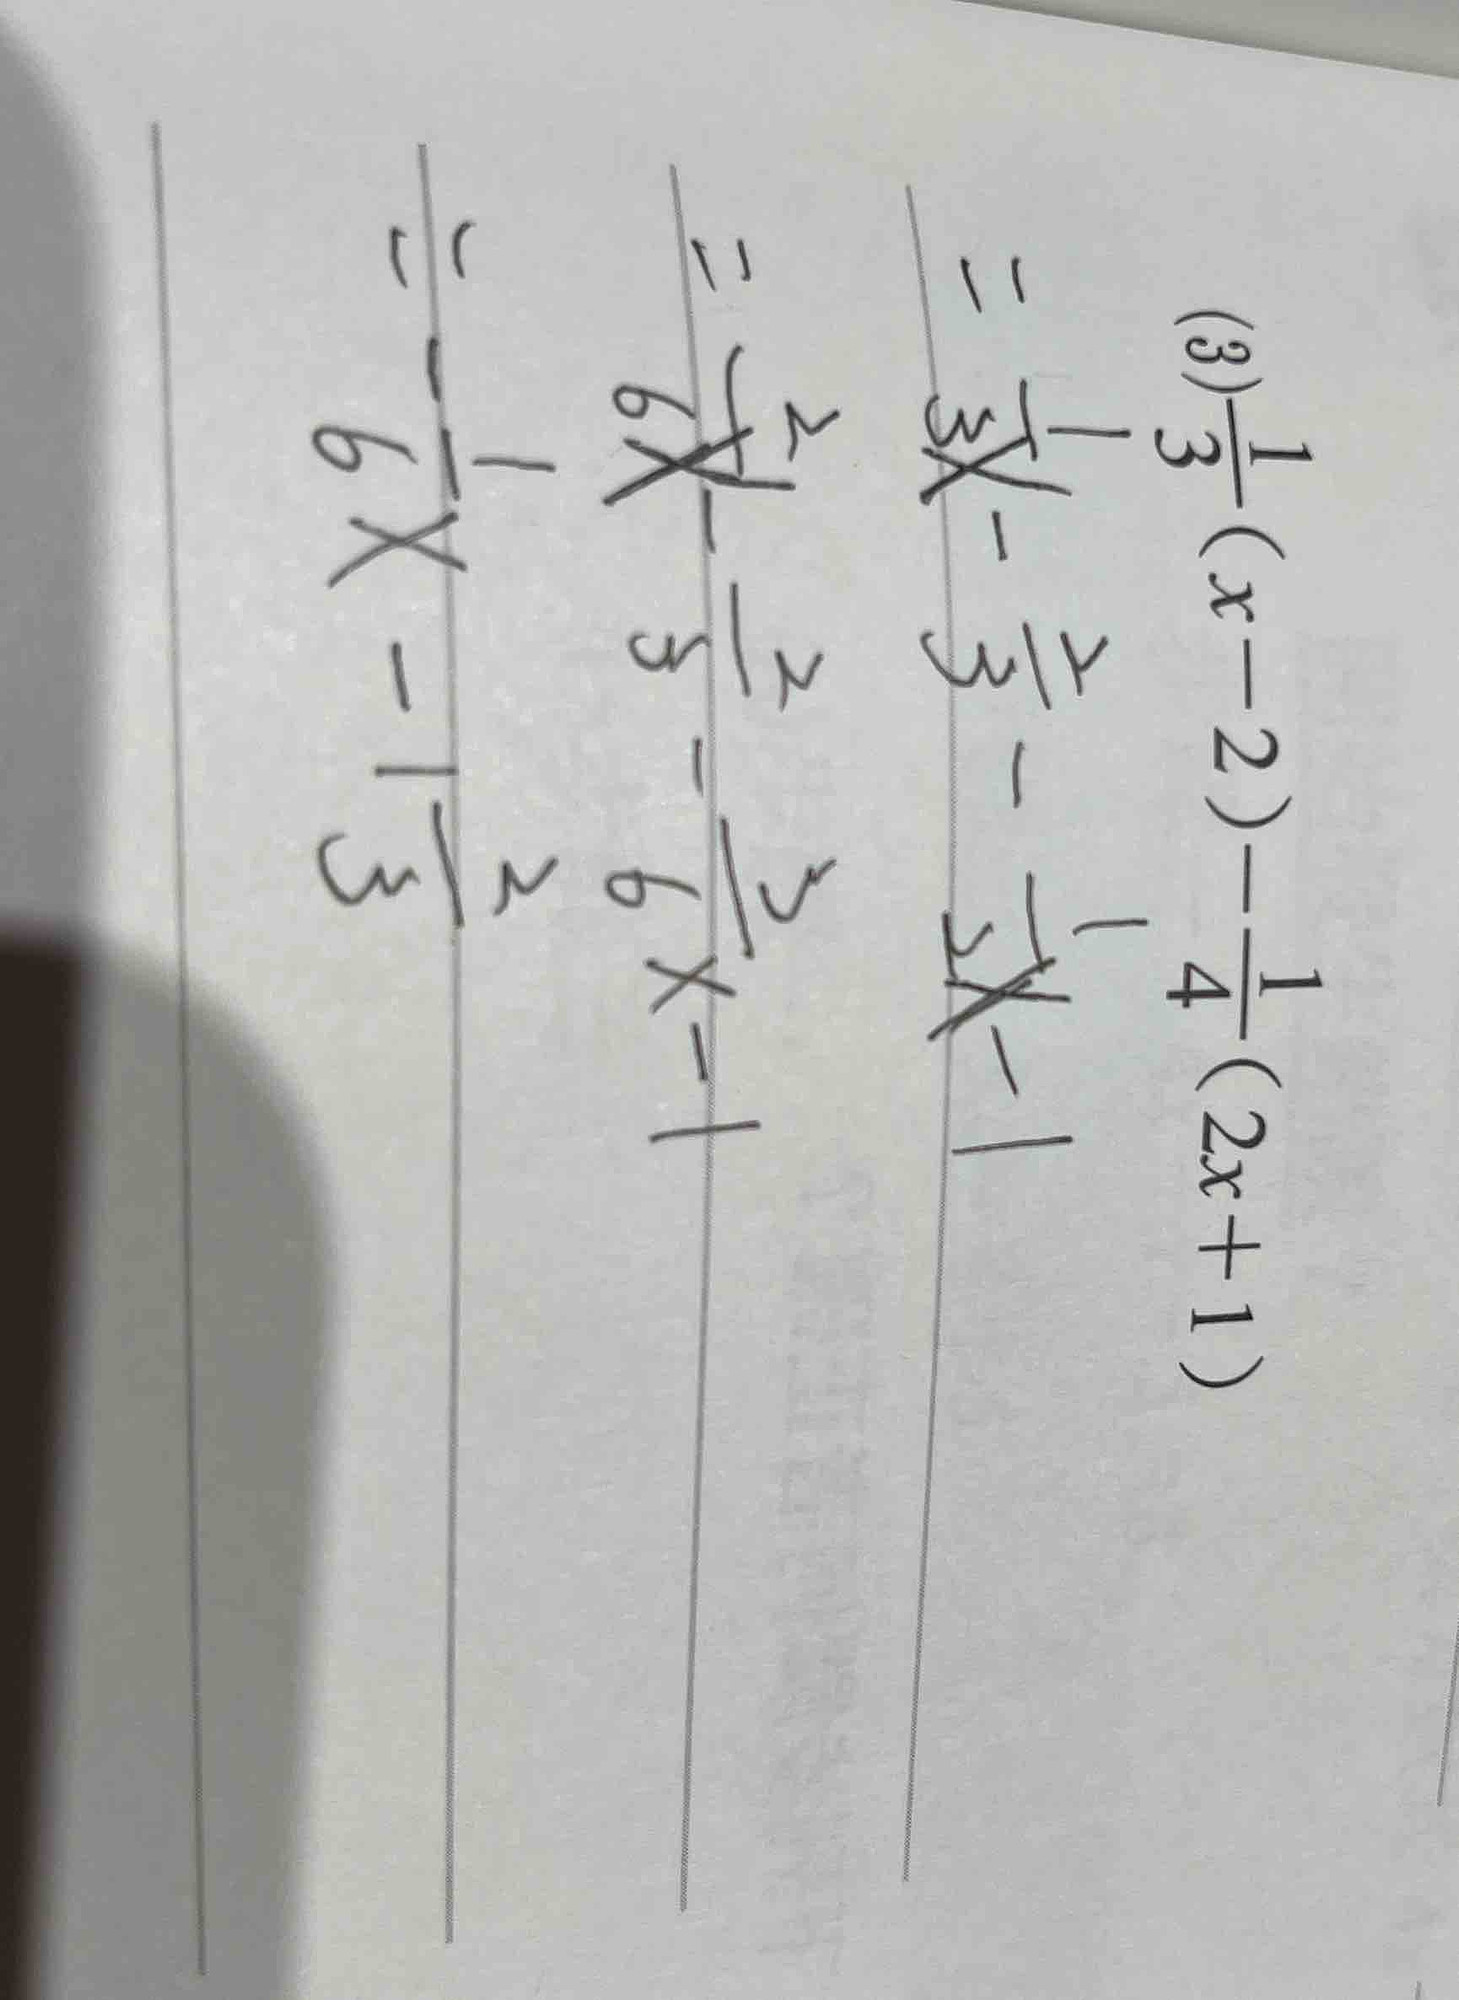 (3) 1/3 (x-2) - 1/4 (2x+1)
= 1/3 x - 2/3 - 1/2 x - 1
= 2/6 x - 2/3 - 3/6 x - 1
= - 1/6 x - 1 2/3